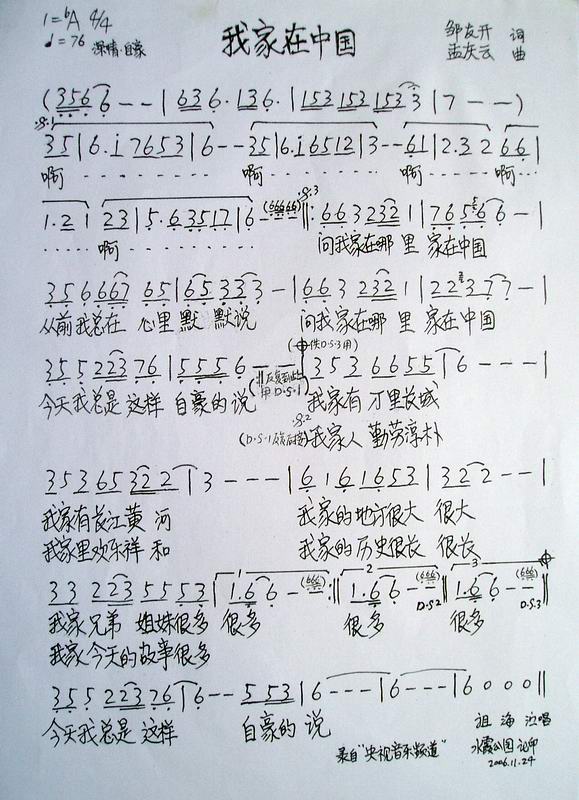 1=ᵇA 4/4
♩=76 深情 自豪
我家在中国
邹友开 词
孟庆云 曲
(3566--|636·136·|153 153 1533|7--)
35|6·i7653|6--35|6·i6512|3--61|2·32 66|
啊 啊 啊 啊
1·21 23|5·63517|6-(66666)‖:6632321|765666-|
啊 问我家在哪里 家在中国
356667 65|65333-|6632321|22377-|
从前我总在 心里默 默说 问我家在哪里 家在中国
355223 76|5556-- 353 6655|6---|
(反复到此用D.S.1) (供D.S.3用)
今天我总是 这样 自豪的说 我家有 万里长城
(D.S.1反复后接) 我家人 勤劳淳朴
353 65322|3---|616 1653|322--|
我家有长江黄 河 我家的地方很大 很大
我家里欢乐祥 和 我家的历史很长 很长
33 223 5553|1·66-(666):‖1·66-(666)|1·66-(666)
1 2 D.S.2 3 D.S.3
我家兄弟 姐妹很多 很多 很多 很多
我家今天的故事很多
355 22376|6--553|6---|6---|6000‖
今天我总是 这样 自豪的 说
祖海 演唱
录自"央视音乐频道" 水霞公园 记印
2006.11.24